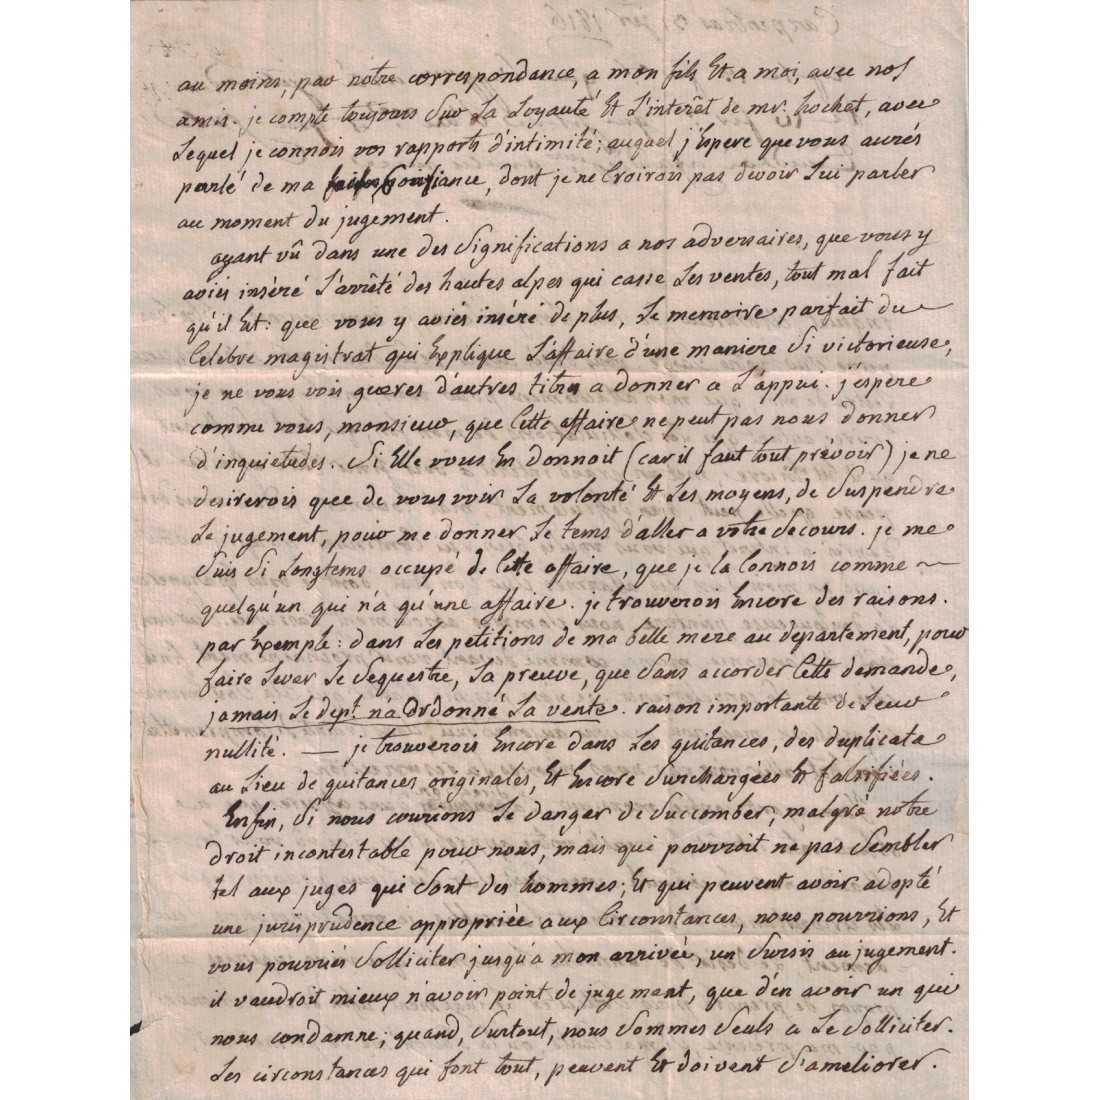 au moins, par notre correspondance, a mon fils Et a moi, avec nos
amis. je compte toujours sur La Loyauté Et L'interêt de mr. hochet, avec
Lequel je connois vos rapports d'intimité; auquel j'Espere que vous aurés
parlé de ma confiance, dont je ne Croirois pas devoir Lui parler
au moment du jugement.
ayant vû dans une des Significations a nos adversaires, que vous y
aviés inséré L'arrêté des hautes alpes qui casse Les ventes, tout mal fait
qu'il Est: que vous y aviés inséré de plus, Le memoire parfait du
Celébre magistrat qui Explique L'affaire d'une maniere Si victorieuse,
je ne vous vois gueres d'autres titres a donner a L'appui. j'éspere
comme vous, monsieur, que Cette affaire ne peut pas nous donner
d'inquietudes. Si Elle vous En donnoit (car il faut tout prévoir) je ne
desirerois que de vous voir La volonté Et Les moyens, de Suspendre
Le jugement, pour me donner Le tems d'aller a vôtre Secours. je me
Suis Si Longtems occupé de Cette affaire, que je la Connois comme
quelqu'un qui n'a qu'une affaire. je trouverois Encore des raisons.
par Exemple: dans Les petitions de ma belle mere au departement, pour
faire Lever Le Sequestre, La preuve, que Sans accorder Cette demande,
jamais Le dept. n'a Ordonné La vente. raison importante de Leur
nullité. — je trouverois Encore dans Les quitances, des duplicata
au Lieu de quitances originales, Et Encore Surchargées Et falsifiées.
Enfin, Si nous courions Le danger de Succomber, malgré notre
droit incontestable pour nous, mais qui pourroit ne pas Sembler
tel aux juges qui Sont des hommes; Et qui peuvent avoir adopté
une jurisprudence appropriée aux Circonstances, nous pourrions, Et
vous pourriés Solliciter jusqu'a mon arrivée, un Sursis au jugement.
il vaudroit mieux n'avoir point de jugement, que d'en avoir un qui
nous condamne; quand, Surtout, nous Sommes Seuls a Le Solliciter.
Les circonstances qui font tout, peuvent Et doivent S'ameliorer.